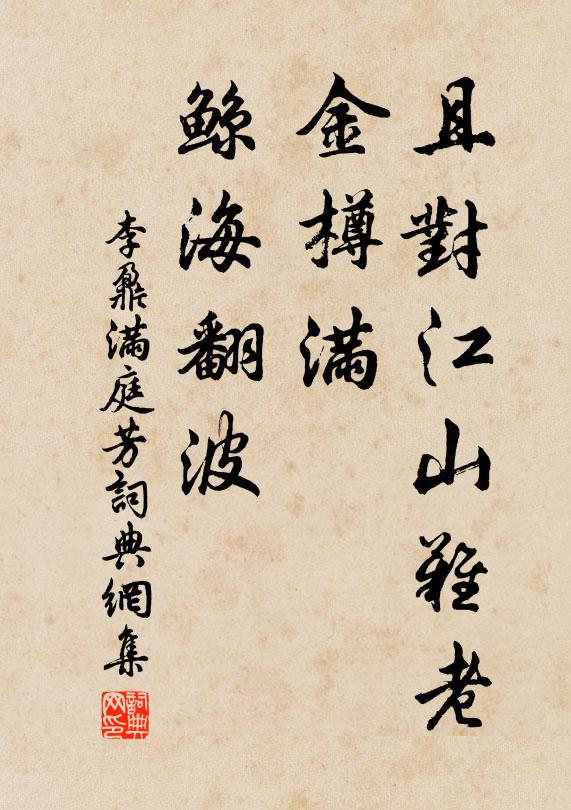 且對江山難老
金樽滿
鲸海翻波
李鼐滿庭芳詞典網集
詞典網印